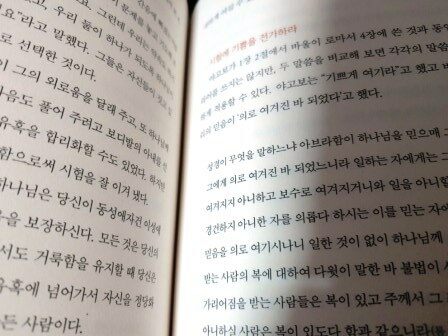 요"라고 말했다. 그들은 자신들이
로 선택한 것이다.
그의 외로움을 달래 주고, 또 하나님께
음도 풀어 주려고 보디발의 아내를
유혹을 합리화할 수도 있었다. 하지만
함으로써 시험을 잘 이겨 냈다.
하나님은 당신이 동성애자건 이성애
을 보장하신다. 모든 것은 당신의
서도 거룩함을 유지할 때 당신은
유혹에 넘어가서 자신을 정당화
든 사람이다.
시험에 기쁨을 전가하라
야고보가 1장 2절에서 바울이 로마서 4장에 쓴 것과 동
하지는 않지만, 두 말씀을 비교해 보면 각각의 말씀
게 적용할 수 있다. 야고보는 "기쁘게 여기라"고 했고 바
리의 믿음이 '의로 여겨진 바 되었다'고 했다.
성경이 무엇을 말하느냐 아브라함이 하나님을 믿으매
그에게 의로 여겨진 바 되었느니라 일하는 자에게는 그
여겨지지 아니하고 보수로 여겨지거니와 일을 아니할
경건하지 아니한 자를 의롭다 하시는 이를 믿는 자에
믿음을 의로 여기시나니 일한 것이 없이 하나님께
받는 사람의 복에 대하여 다윗이 말한 바 불법이 사
가리어짐을 받는 사람들은 복이 있고 주께서 그
아니하실 사람은 복이 있도다 함과 같으니라